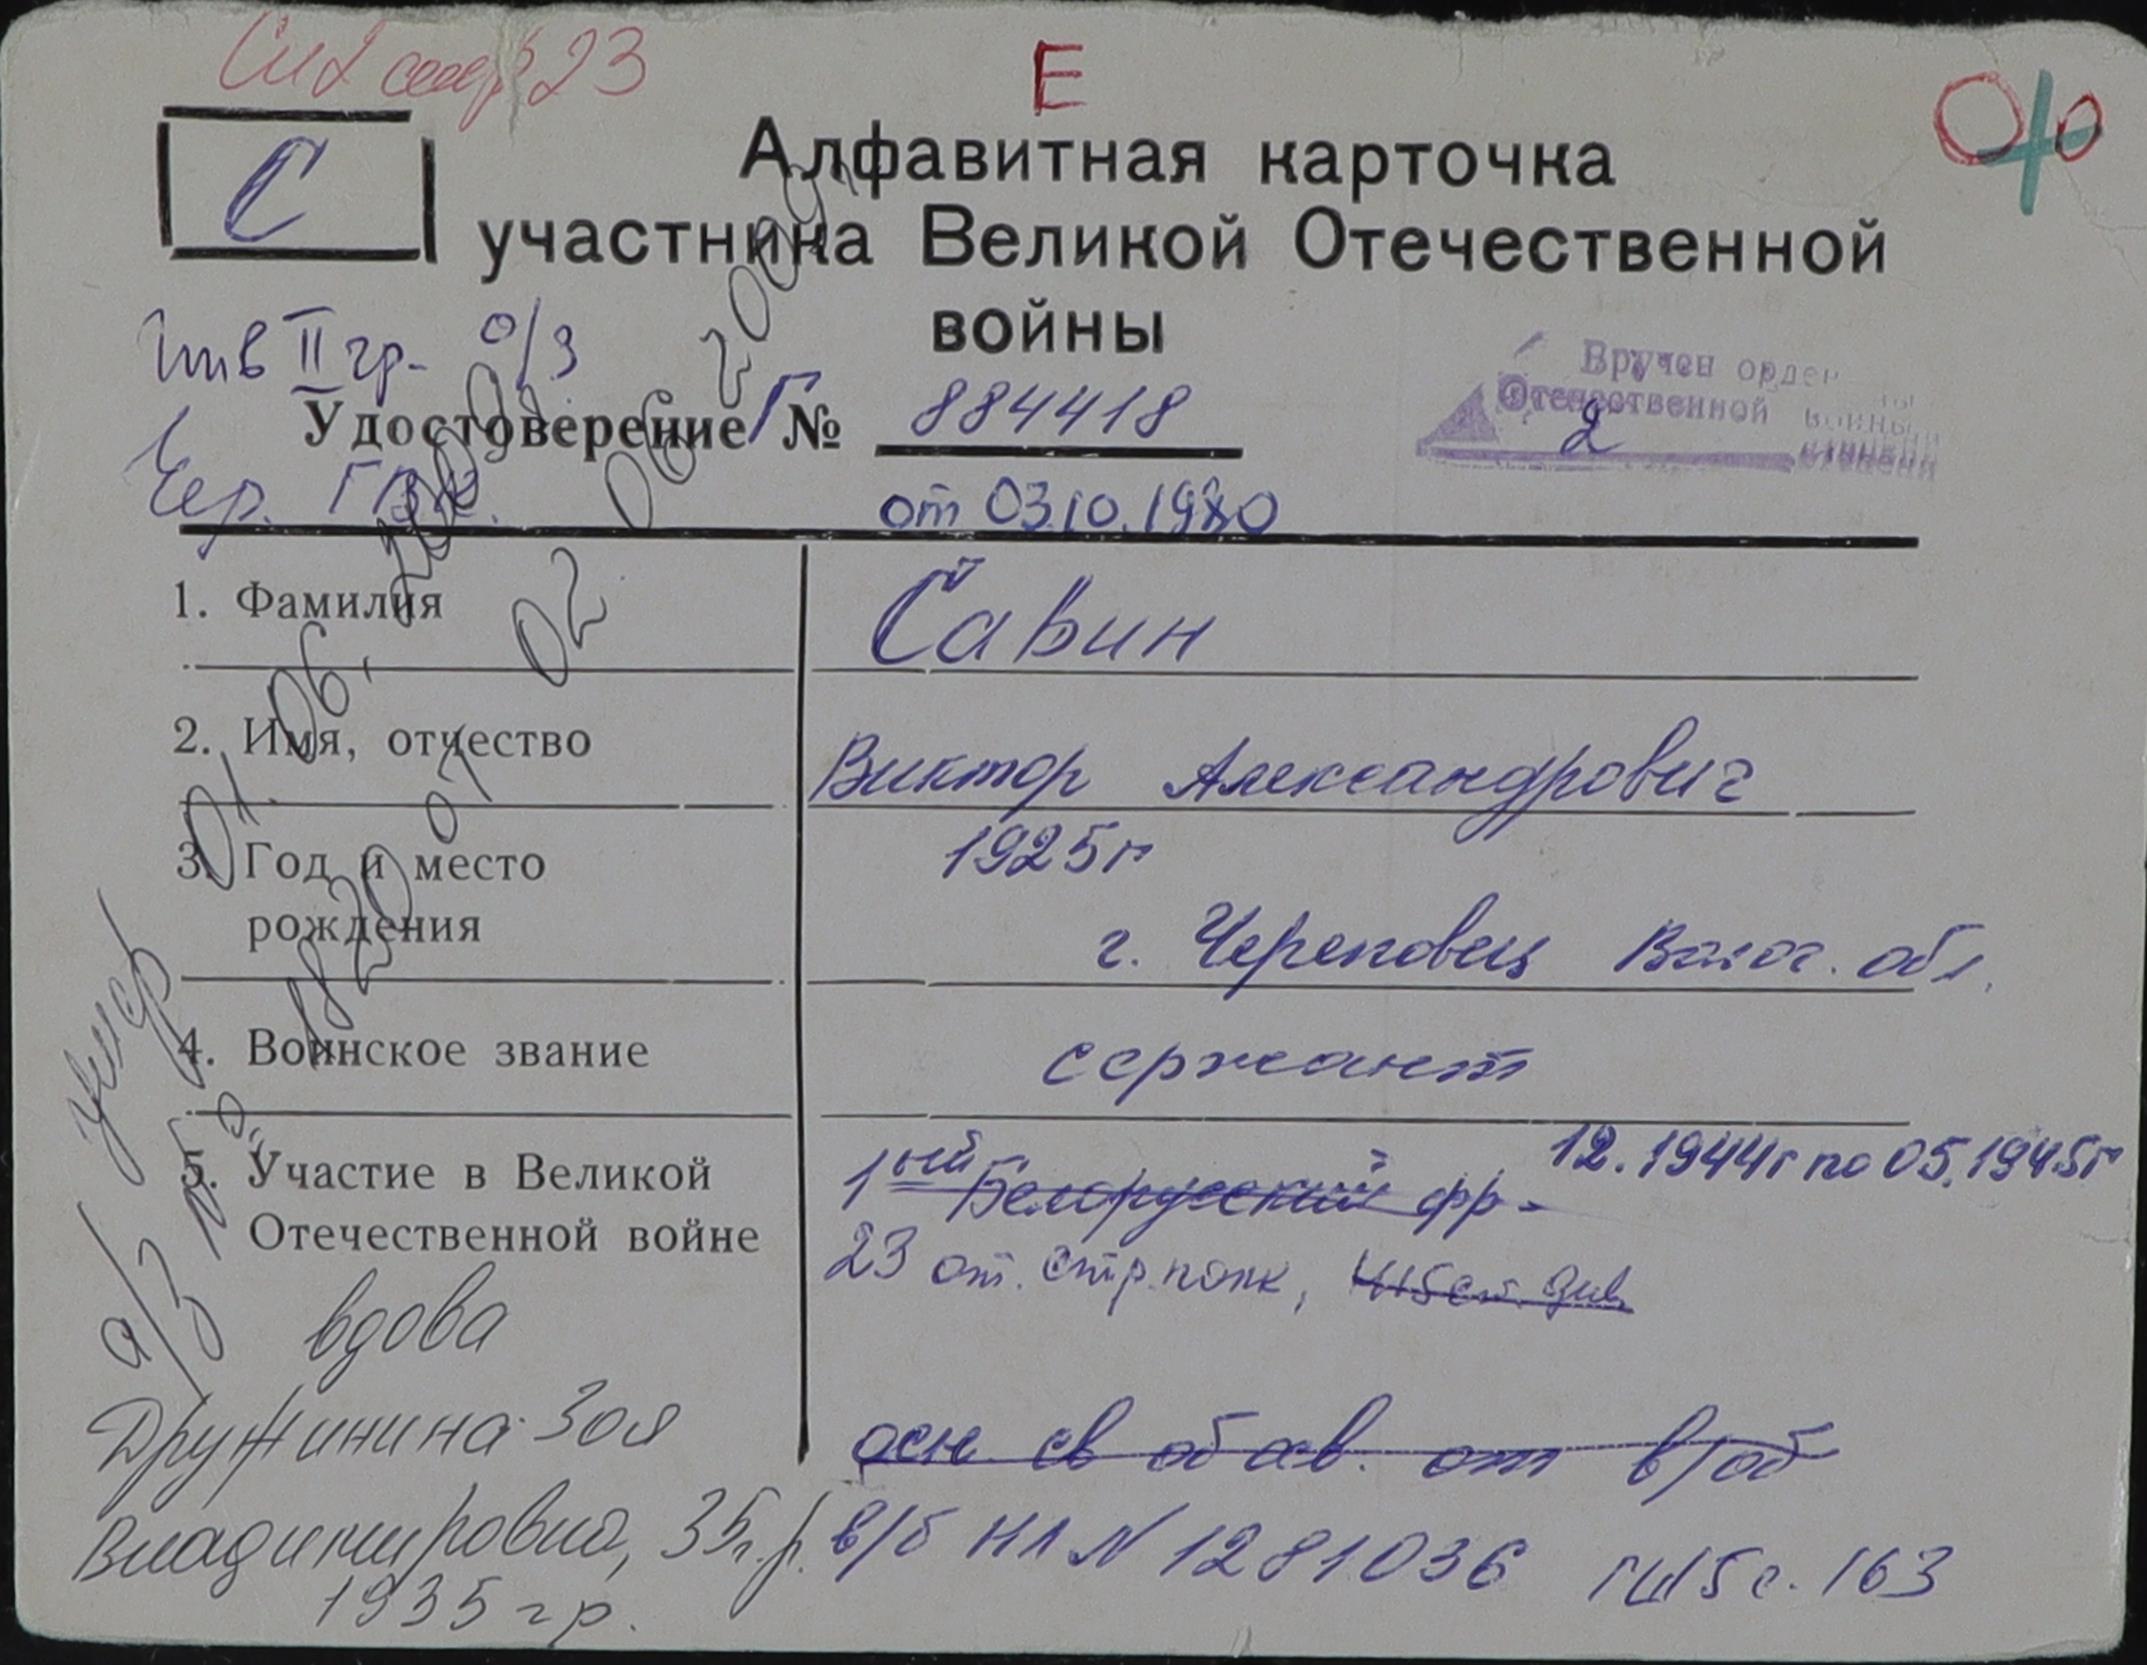 23
Е
О/О
С
Алфавитная карточка
участника Великой Отечественной
войны
Инв II гр. о/з
Вручен орден
Отечественной войны
2 степени
Удостоверение Г № 884418
Чер. ГВК.
от 03.10.1980
1. Фамилия Савин
2. Имя, отчество Виктор Александрович
3. Год и место 1925г
рождения г. Череповец Волог. обл.
4. Воинское звание сержант
5. Участие в Великой 1ый Белорусский фр- 12.1944г по 05.1945г
Отечественной войне 23 от. стр. полк, див
осн. св об осв. от в/об
в/б НЛ N 1281036 ГШ 5 с. 163
умер
а/з
02 06 2009
вдова
Дружинина Зоя
Владимировна, 35г.р.
1935 гр.